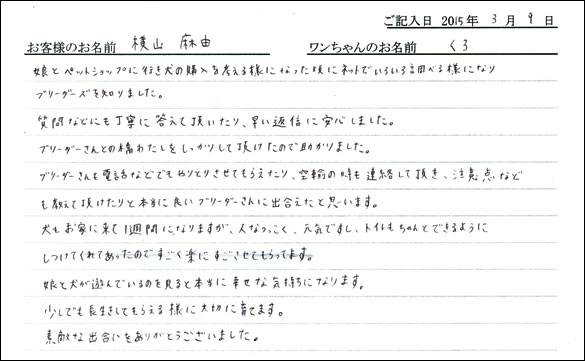 ご記入日 2015年 3月 9日
お客様のお名前 横山 麻由 ワンちゃんのお名前 くろ
娘とペットショップに行き犬の購入を考える様になった頃にネットでいろいろ調べる様になり
ブリーダーズを知りました。
質問などにも丁寧に答えて頂いたり、早い返信に安心しました。
ブリーダーさんとの橋わたしをしっかりして頂けたので助かりました。
ブリーダーさんも電話などでもやりとりさせてもらえたり、空輸の時も連絡して頂き、注意点など
も教えて頂けたりと本当に良いブリーダーさんに出合えたと思います。
犬もお家に来て1週間になりますが、人なつっこく、元気ですし、トイレもちゃんとできるように
しつけてくれてあったのですごく楽にすごさせてもらってます。
娘と犬が遊んでいるのを見ると本当に幸せな気持ちになります。
少しでも長生きしてもらえる様に大切に育てます。
素敵な出合いをありがとうございました。